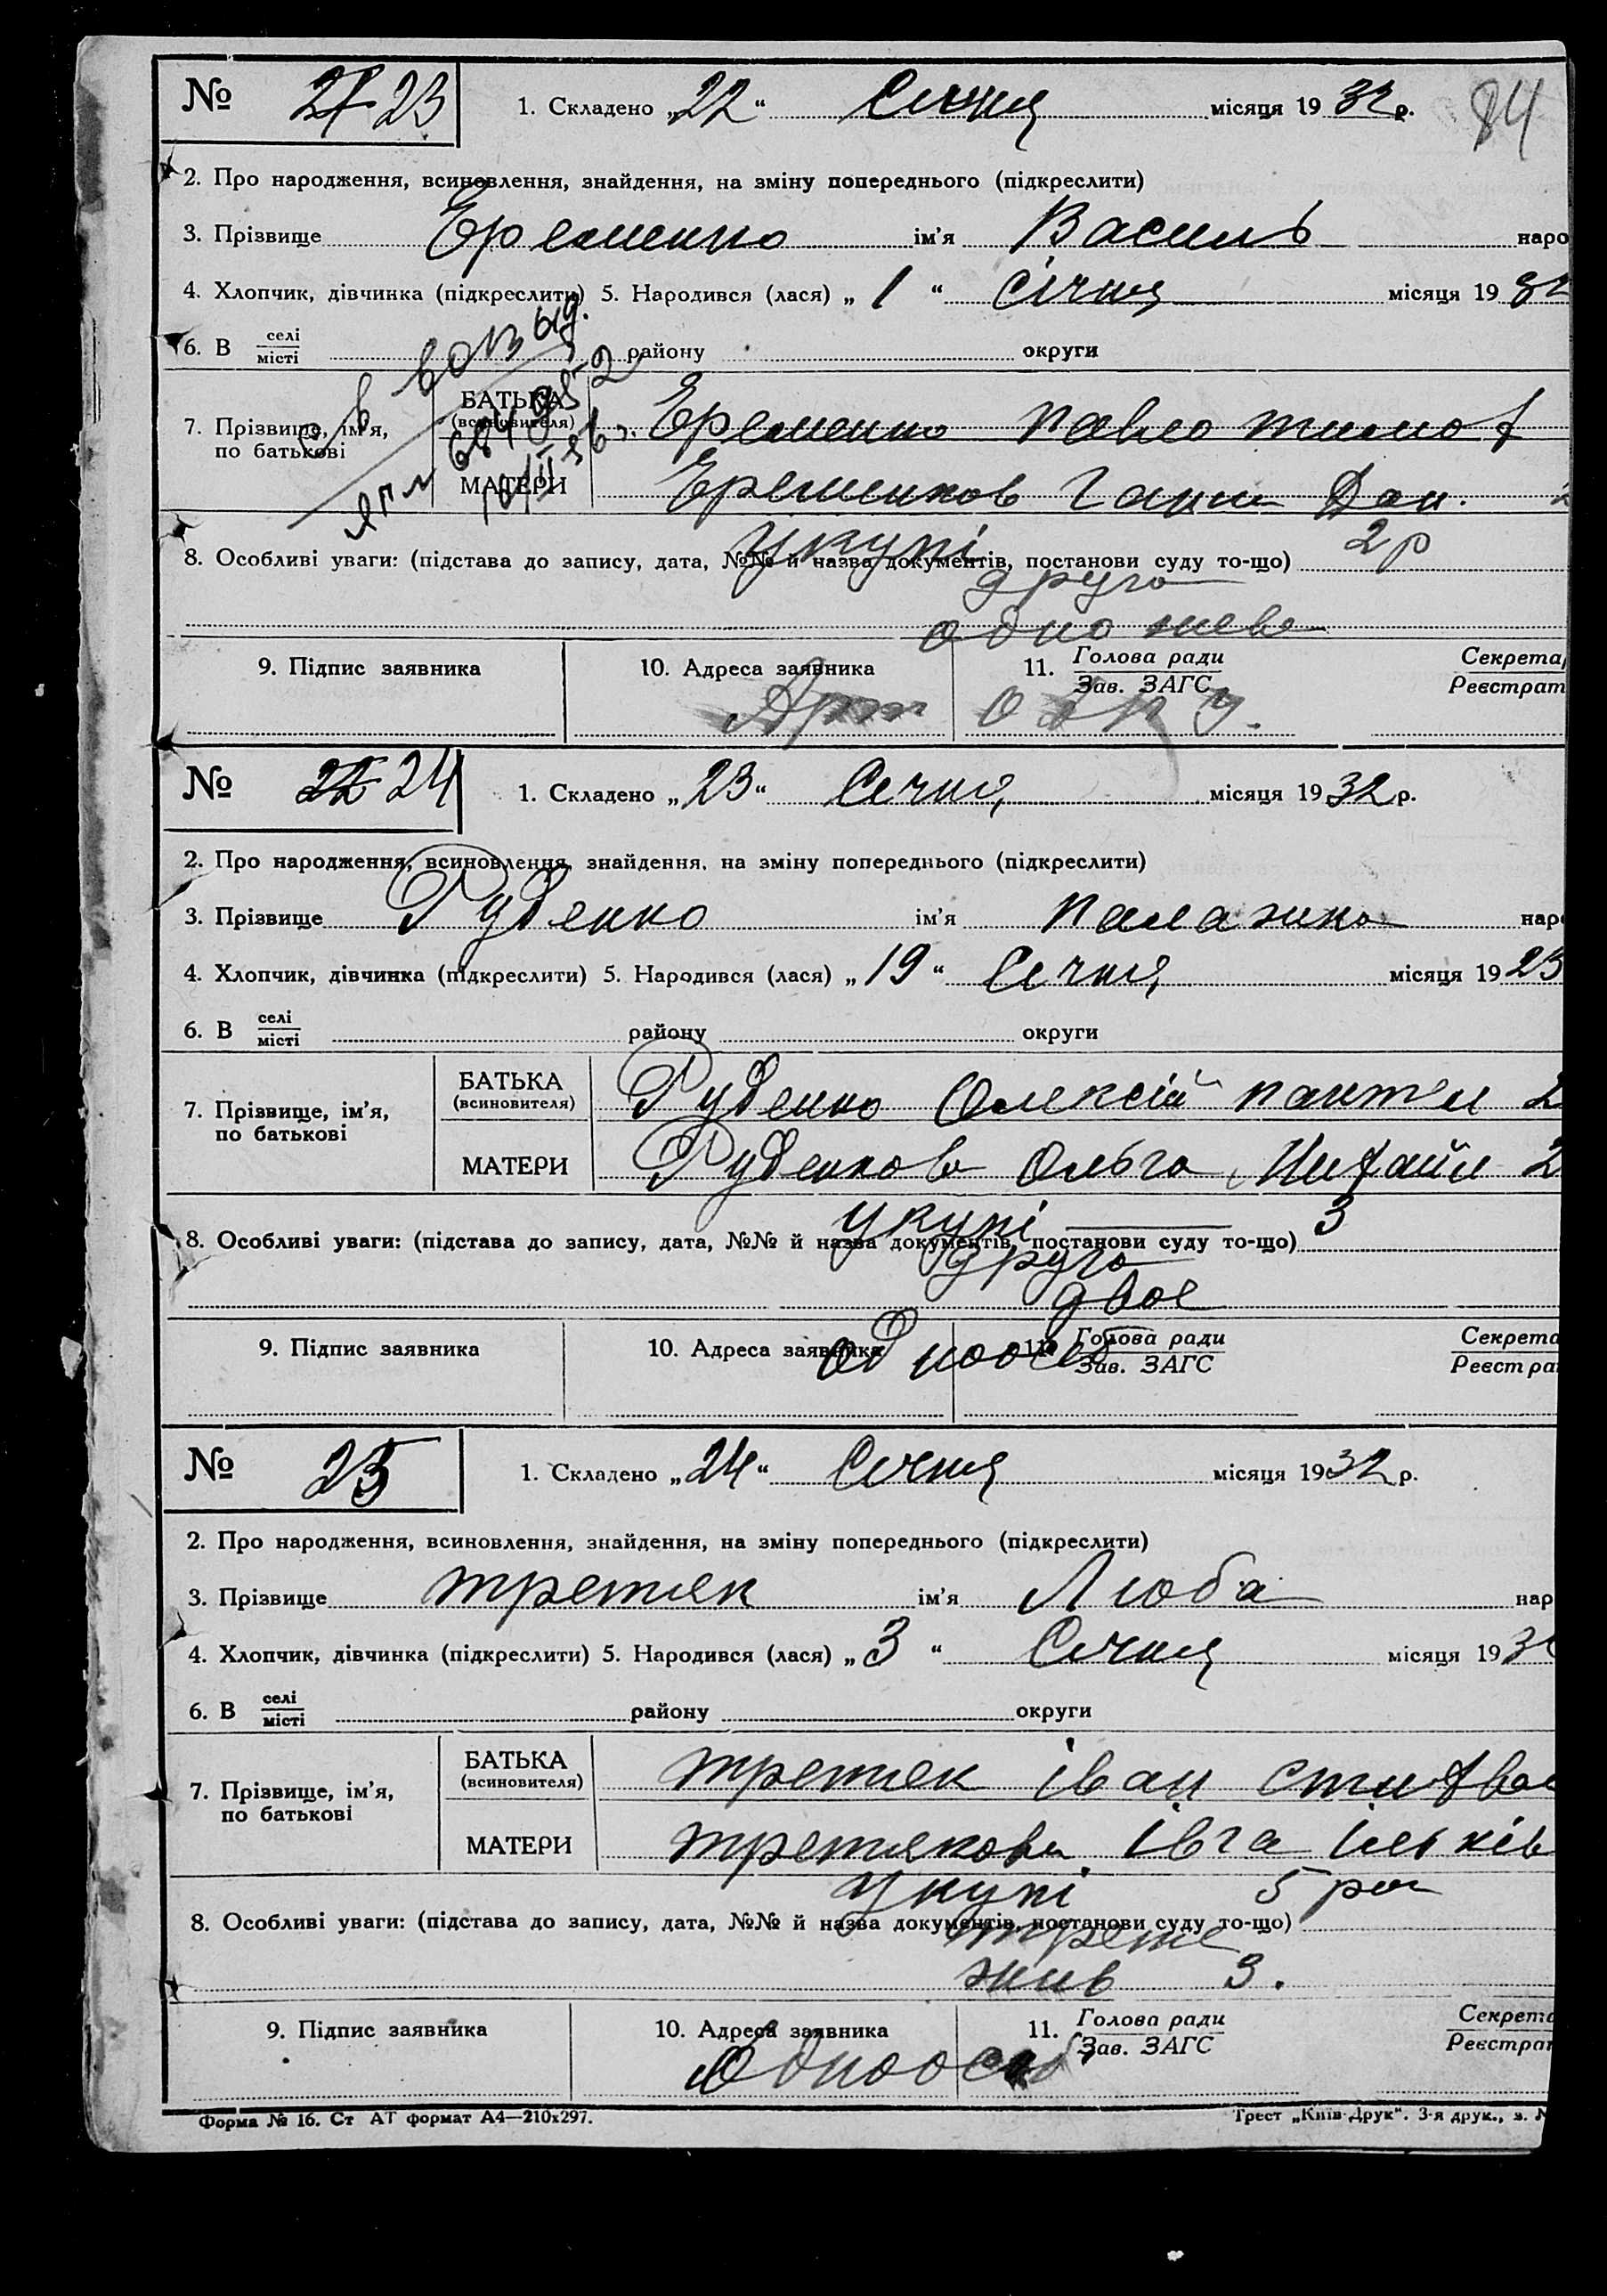 № 23 1. Складено „22“ Сичня місяця 1932 р. 84
2. Про народження, всиновлення, знайдення, на зміну попереднього (підкреслити)
3. Прізвище Еременко ім'я Василь наро
4. Хлопчик, дівчинка (підкреслити) 5. Народився (лася) „1“ січня місяця 1932
6. В селі місті району округи
7. Прізвище, ім'я, по батькові
БАТЬКА (всиновителя) Еременко Павло Тимоф
МАТЕРИ Еременков Ганна Дан. 2
Укупі 2 р
8. Особливі уваги: (підстава до запису, дата, №№ й назва документів, постанови суду то-що)
друго
одно живе
9. Підпис заявника 10. Адреса заявника 11. Голова ради Зав. ЗАГС Секрета Реєстрат
Арт
№ 24 1. Складено „23“ Сечня місяця 1932 р.
2. Про народження, всиновлення, знайдення, на зміну попереднього (підкреслити)
3. Прізвище Руденко ім'я Палажка наро
4. Хлопчик, дівчинка (підкреслити) 5. Народився (лася) „19“ Сечня місяця 1923
6. В селі місті району округи
7. Прізвище, ім'я, по батькові
БАТЬКА (всиновителя) Руденко Олексій Пантел 2
МАТЕРИ Руденкова Ольга Михайл 2
Укупі 3
8. Особливі уваги: (підстава до запису, дата, №№ й назва документів, постанови суду то-що)
друго
двое
9. Підпис заявника 10. Адреса заявника 11. Голова ради Зав. ЗАГС Секрета Реєстра
Одноосіб
№ 25 1. Складено „24“ Сичня місяця 1932 р.
2. Про народження, всиновлення, знайдення, на зміну попереднього (підкреслити)
3. Прізвище Третяк ім'я Люба нар
4. Хлопчик, дівчинка (підкреслити) 5. Народився (лася) „3“ Сичня місяця 193
6. В селі місті району округи
7. Прізвище, ім'я, по батькові
БАТЬКА (всиновителя) Третяк Іван
МАТЕРИ Третякова Івга Ільків
Укупі 5 рок
8. Особливі уваги: (підстава до запису, дата, №№ й назва документів, постанови суду то-що)
третє
жив 3.
9. Підпис заявника 10. Адреса заявника 11. Голова ради Зав. ЗАГС Секрета Реєстрат
Одноосіб
Форма № 16. Ст АТ формат А4—210х297. Трест „Київ-Друк“. 3-я друк., з. №